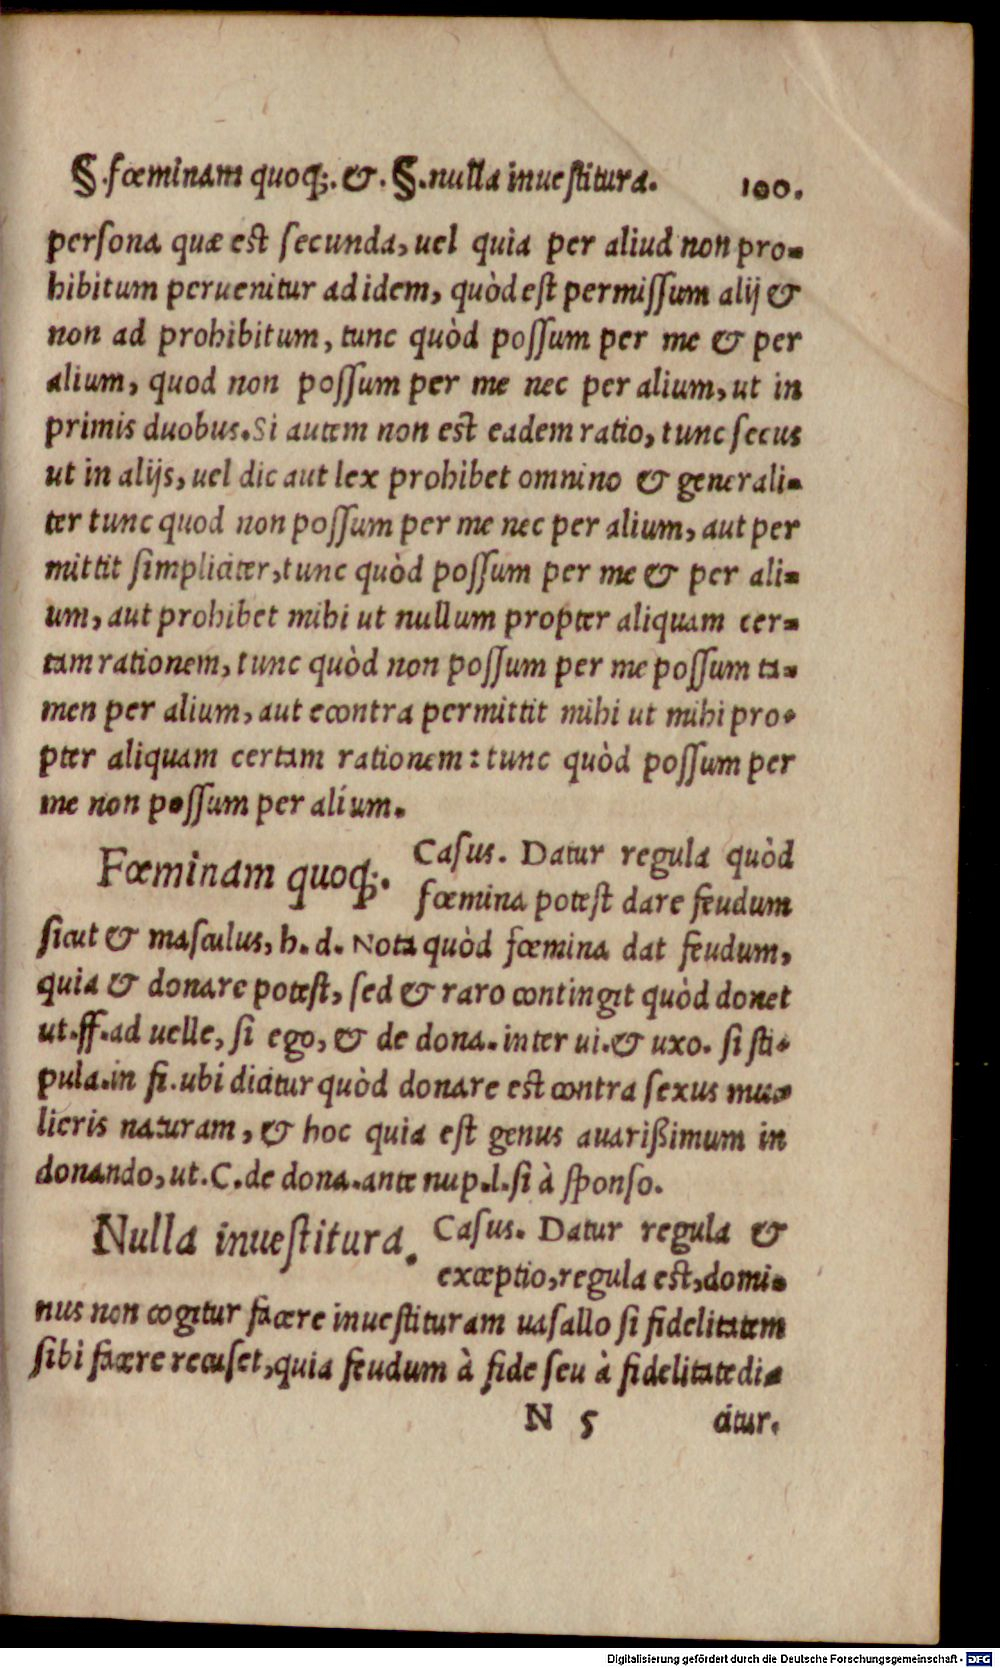 §.fœminam quoq;. &. §.nulla inuestitura. 100.
persona quæ est secunda, uel quia per aliud non pro-
hibitum peruenitur ad idem, quòd est permissum alij &
non ad prohibitum, tunc quòd possum per me & per
alium, quod non possum per me nec per alium, ut in
primis duobus. Si autem non est eadem ratio, tunc secus
ut in alijs, uel dic aut lex prohibet omnino & generali-
ter tunc quod non possum per me nec per alium, aut per
mittit simpliciter, tunc quòd possum per me & per ali-
um, aut prohibet mihi ut nullum propter aliquam cer-
tam rationem, tunc quòd non possum per me possum ta-
men per alium, aut econtra permittit mihi ut mihi pro-
pter aliquam certam rationem: tunc quòd possum per
me non possum per alium.
Fœminam quoq;. Casus. Datur regula quòd
fœmina potest dare feudum
sicut & masculus, h. d. Nota quòd fœmina dat feudum,
quia & donare potest, sed & raro contingit quòd donet
ut. ff. ad uelle, si ego, & de dona. inter ui. & uxo. si sti-
pula. in fi. ubi dicitur quòd donare est contra sexus mu-
lieris naturam, & hoc quia est genus auarißimum in
donando, ut. C. de dona. ante nup. l. si à sponso.
Nulla inuestitura. Casus. Datur regula &
exceptio, regula est, domi-
nus non cogitur facere inuestituram uasallo si fidelitatem
sibi facere recuset, quia feudum à fide seu à fidelitate di-
N 5 citur.
Digitalisierung gefördert durch die Deutsche Forschungsgemeinschaft - DFG